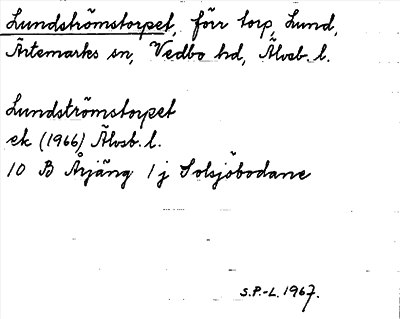 Lundströmstorpet, förr torp, Lund,
Ärtemarks sn, Vedbo hd, Älvsb. l.
Lundströmstorpet
ek (1966) Älvsb. l.
10 B Årjäng 1 j Solsjöbodane
S.P.-L. 1967.